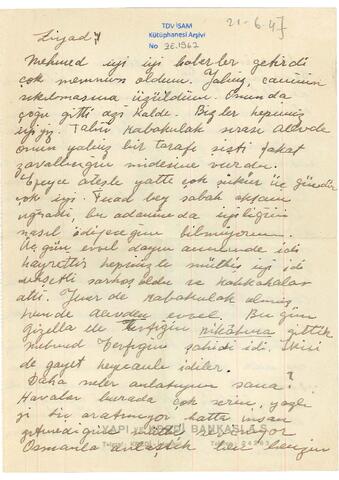 TDV İSAM
Kütüphanesi Arşivi
No 2E.1962
21-6-47
Ziyad,
Mehmed iyi iyi haberler getirdi
çok memnun oldum. Yalnız canının
sıkılmasına üzüldüm. Onunda
çoğu gitti azı kaldı. Bizler hepimiz
iyiyiz. Tabii kabakulak sırası
onun yalnız bir tarafı şişti fakat
zavallının midesine vurdu.
Epeyce ateşle yattı çok şükür üç gündür
çok iyi. Fuad bey sabah akşam
uğradı, bu adamında iyiliğini
nasıl ödiyeceğim bilmiyorum.
Üç gün evvel dayın da idi
hayrettir hepimizle müthiş iyi idi
sarhoş oldu ve kahkahalar
attı. de kabakulak olmuş
hemde evvel. Bu gün
Gizella ile Tevfiğin nikâhına gittik
Mehmed Tevfiğin şahidi idi. İkisi
de gayet heyecanlı idiler.
Daha neler anlatayım sana?
Havalar burada çok serin, yazlığa
gitmediğine
Osmanla anlaştık ben bengün
YAPI ve KREDİ BANKASI A.Ş.